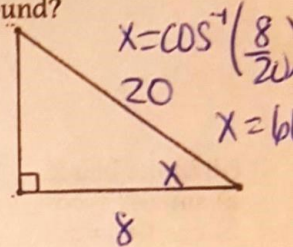 und?
x=cos⁻¹(8/20)
20
x=6
x
8